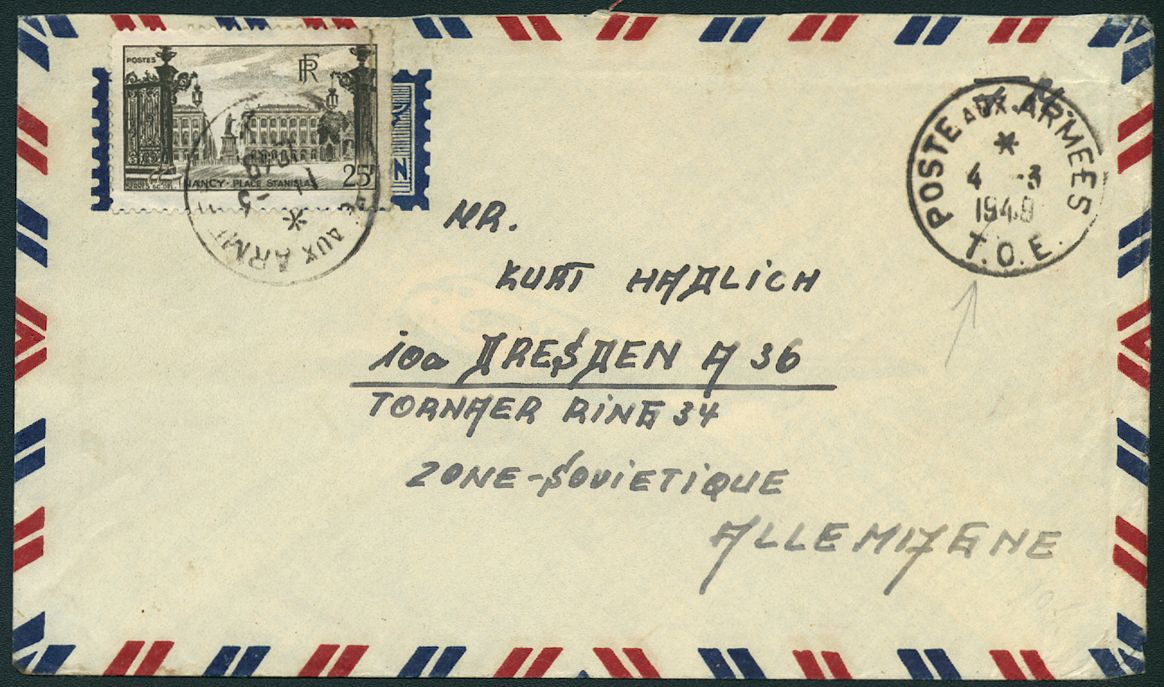 POSTES RF
NANCY - PLACE STANISLAS 25F
AUX ARM
POSTE AUX ARMEES
*
4 -3
1948
T.O.E.
MR.
KURT HADLICH
10a DRESDEN A 36
TORNAER RING 34
ZONE-SOVIETIQUE
ALLEMAGNE